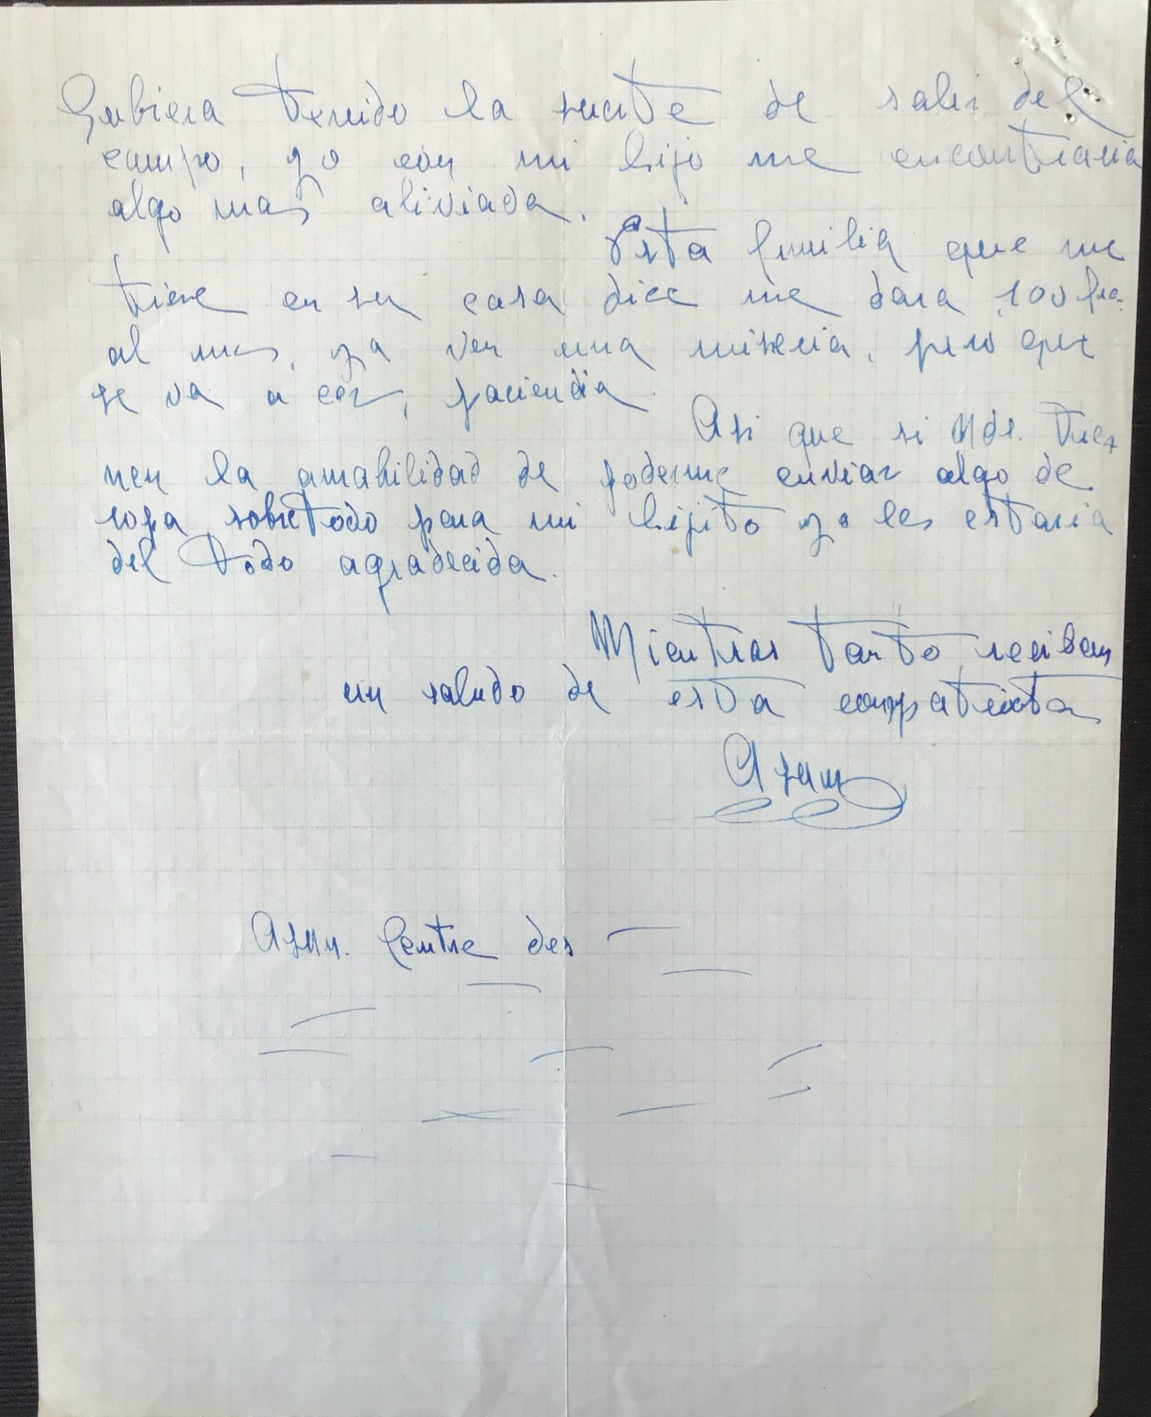 hubiera tenido la suerte de salir del
campo, yo con mi hijo me encontraria
algo mas aliviada.
Esta familia que me
tiene en su casa dice me dara 100 frc.
al mes, ya ven una miseria, pero que
se va a cer, paciencia.
Asi que si Uds. tie-
nen la amabilidad de poderme enviar algo de
ropa sobretodo para mi hijito yo les estaria
del todo agradecida.
Mientras tanto reciban
un saludo de esta compatriota
Centre des